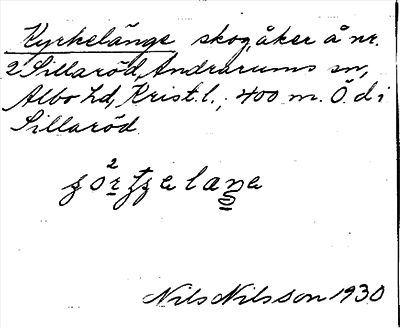 Kyrkelänge skog, åker å nr.
2 Sillaröd, Andrarums sn,
Albo hd, Krist.l.; 400 m. Ö. d i
Sillaröd.
Nils Nilsson 1930